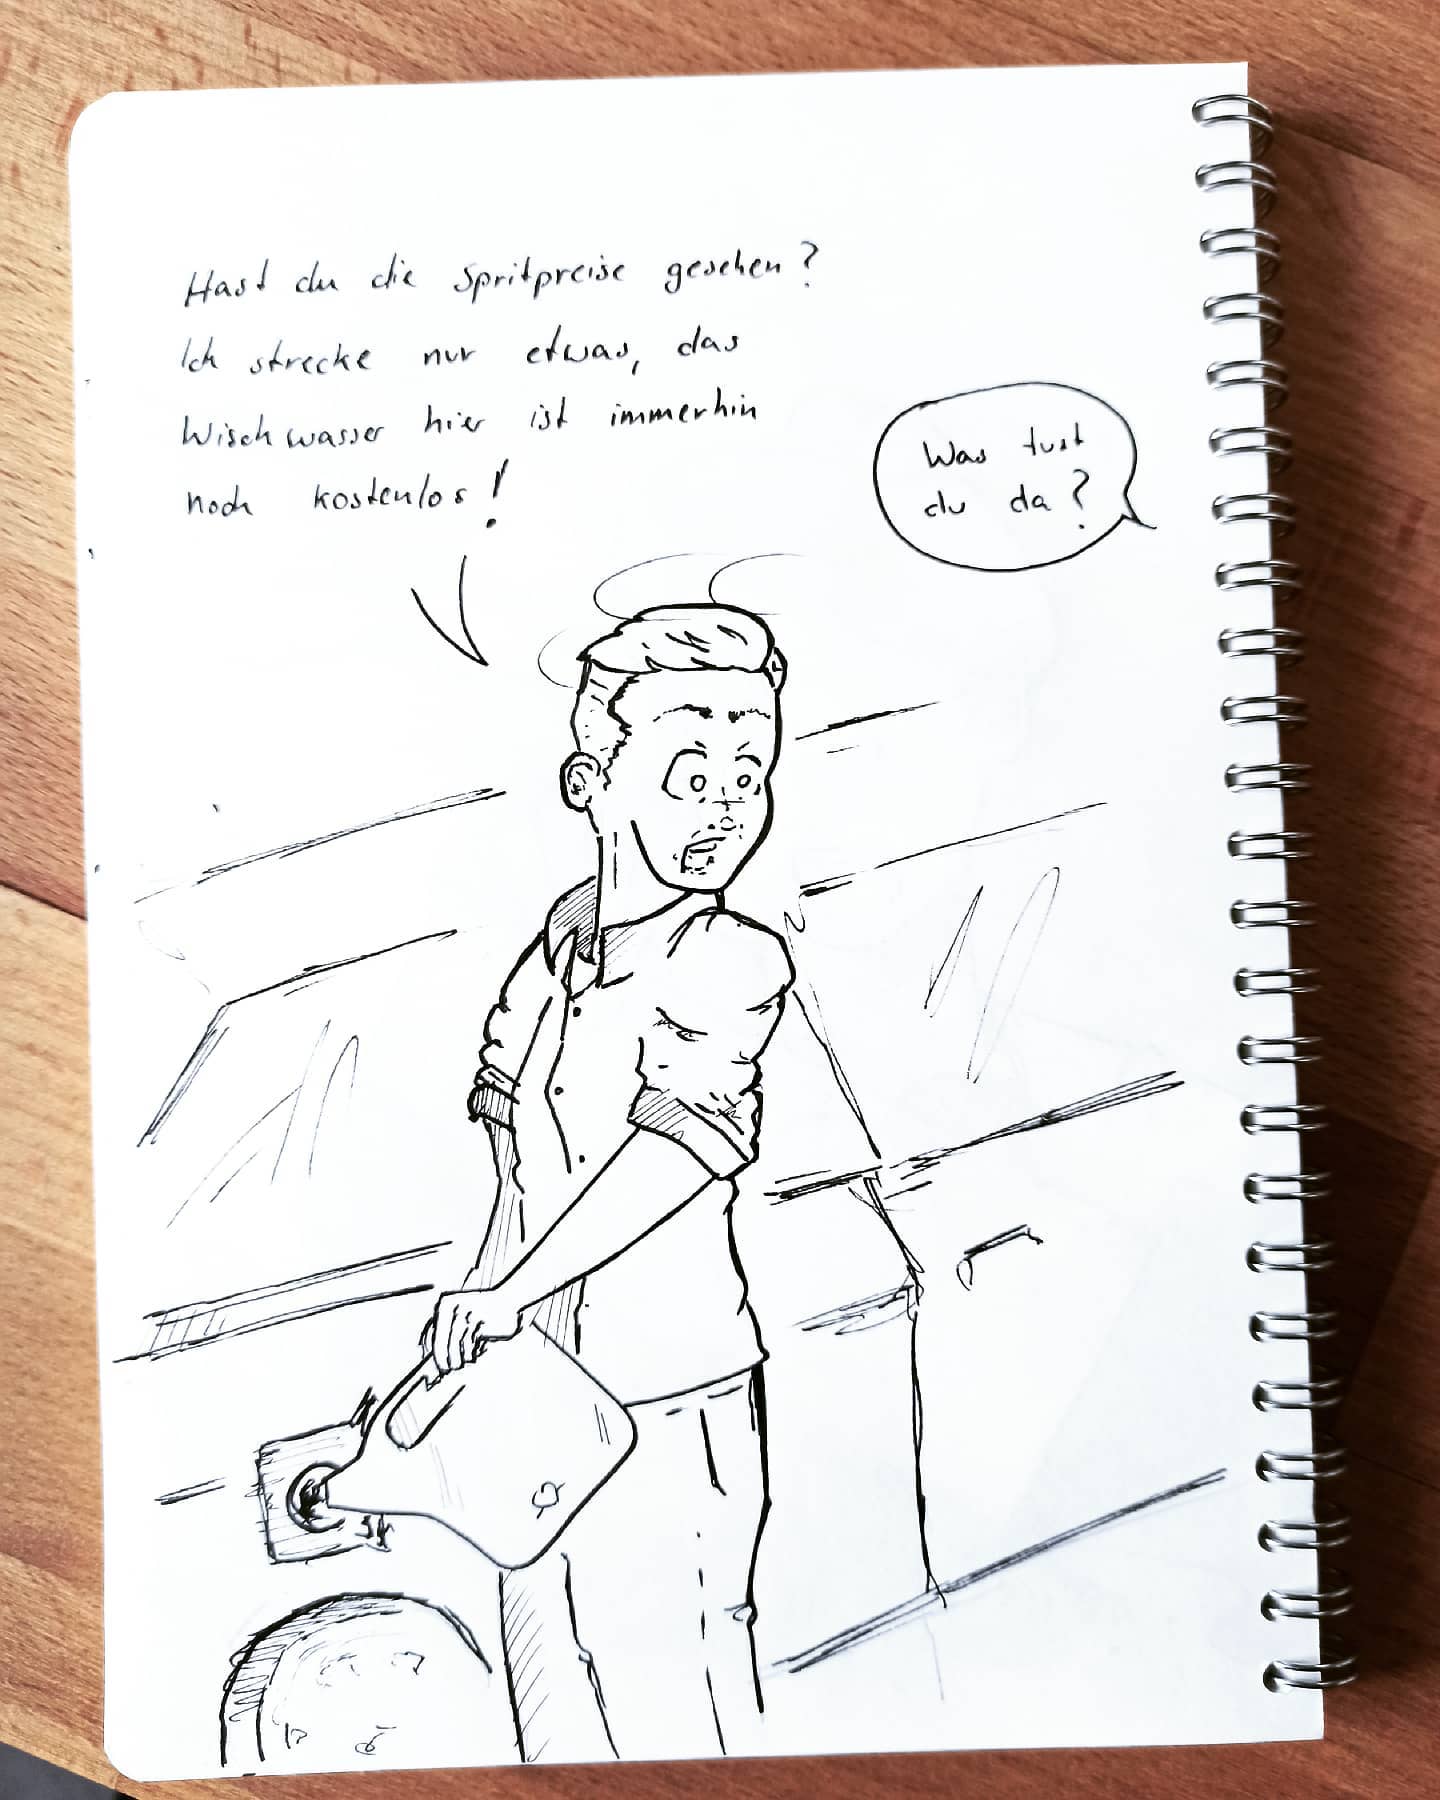 Hast du die Spritpreise gesehen?
Ich strecke nur etwas, das
Wischwasser hier ist immerhin
noch kostenlos!
Was tust
du da?